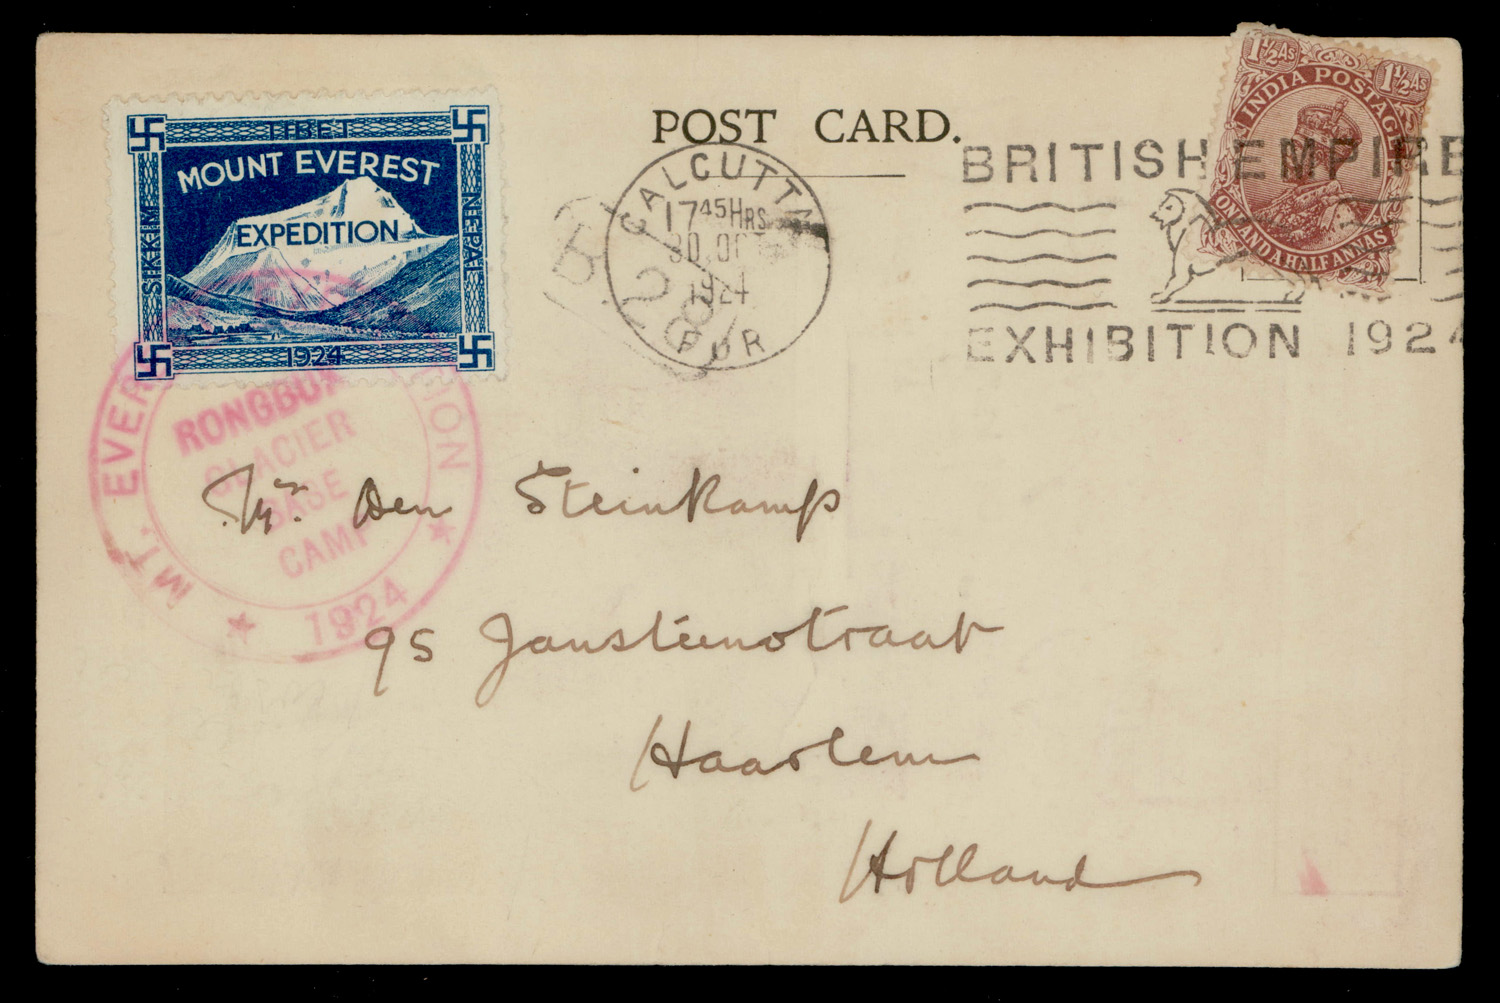 TIBET
MOUNT EVEREST
EXPEDITION
SIKKIM
NEPAL
1924
POST CARD.
CALCUTTA
17 45 HRS
30. OC
1924
BRITISH EMPIRE
EXHIBITION 1924
1½ AS 1½ AS
INDIA POSTAGE
ONE AND A HALF ANNAS
MT. EVER SION
RONGBU
GLACIER
BASE
CAMP
1924
Mr. Den Steinkamp
95 Jansteenstraat
Haarlem
Holland